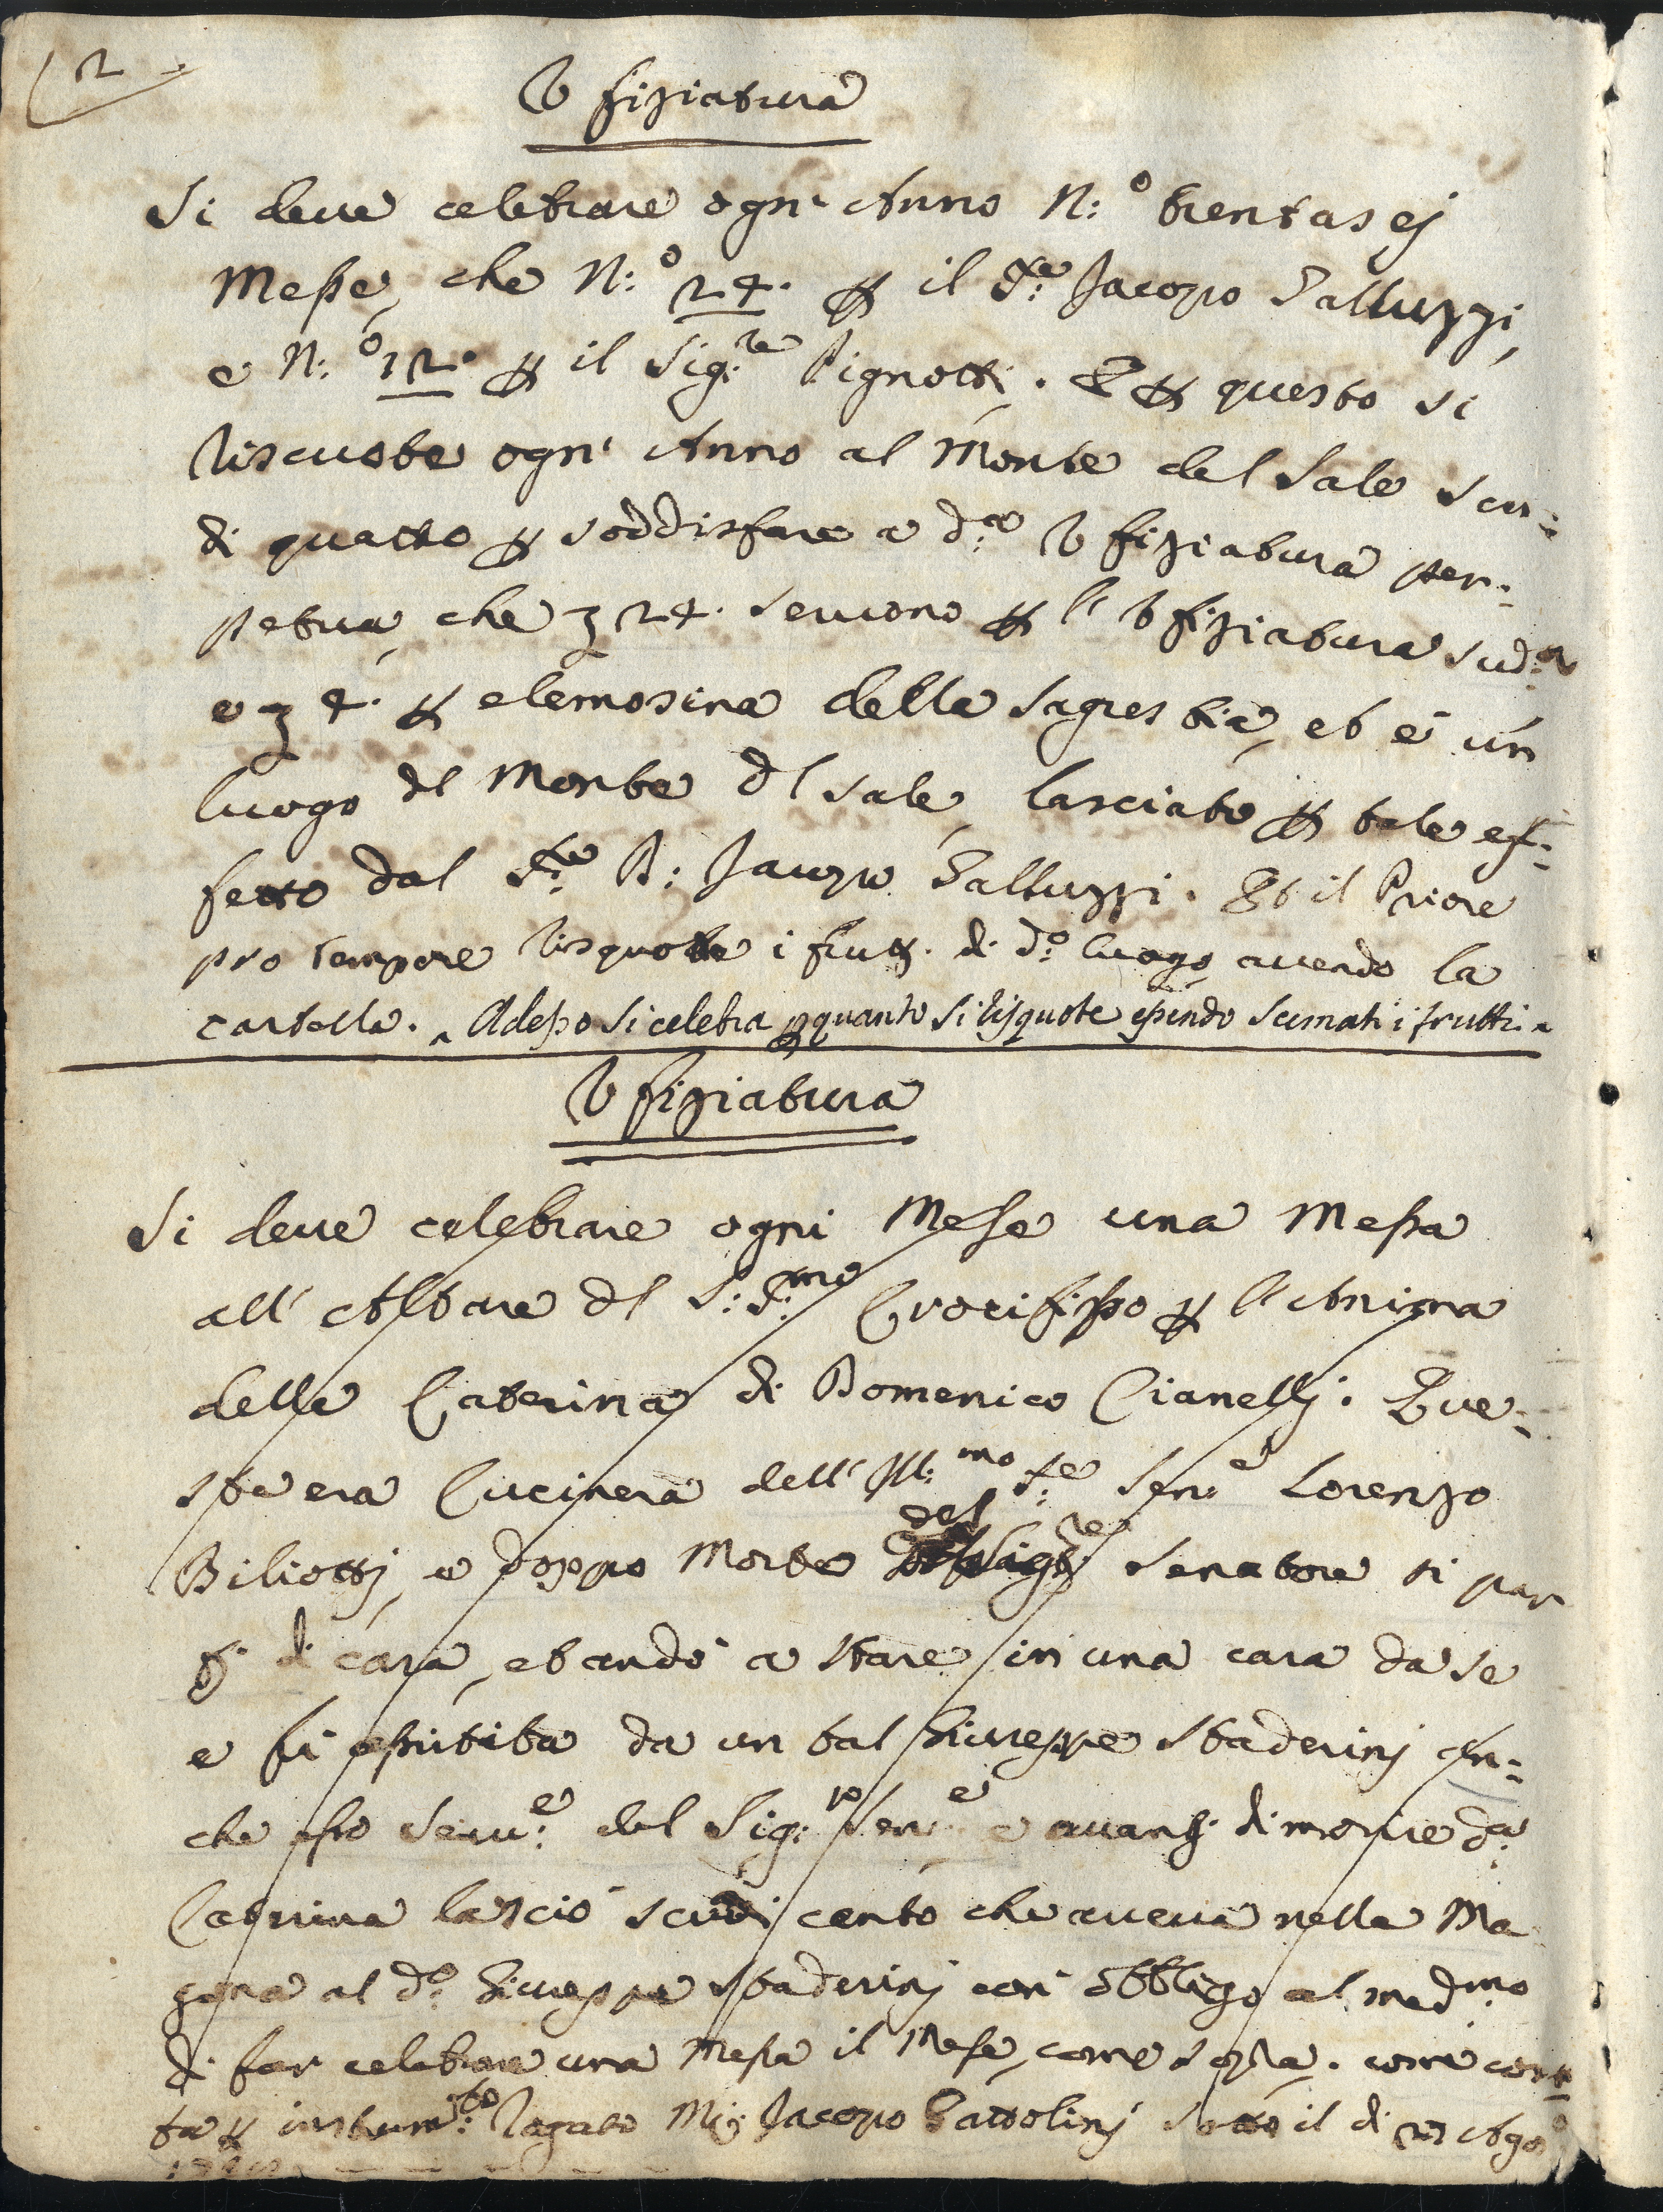 2
Ufiziatura
Si deve celebrare ogn' Anno N:º trentasej
Messe, che N:º 24. p il S:re Jacopo Galluzzi,
e N:º 12. p il Sig:re Pignotti. E p questo si
riscuote ogn' Anno al Monte del Sale scu:
di quattro p soddisfare a d:a Ufiziatura per:
petua, che 24. servono p l' Ufiziatura sud:a
e 4. p elemosina della Sagrestia, et è un
luogo del Monte del Sale, lasciato p tale ef:
fetto dal S:re Jacopo Galluzzi. Et il Priore
pro tempore risquote i frutti di d:o luogo avendo la
cartella. Adesso si celebra p quanto si risquote essendo scemati i frutti
Ufiziatura
Si deve celebrare ogni Mese una Messa
all' Altare del S:S:mo Crocifisso p l' Anima
della Caterina di Domenico Cianellj. Que:
sta era Cucinera dell' Ill:mo S:re Sen:e Lorenzo
Biliottj, e doppo Morte del Sig:re Senatore si par
tì di casa, et andò a stare in una casa da se
e fu assistita da un tal Giuseppe Staderinj an:
che esso Serv:e del Sig:re Sen:e e avanti di morire d:a
Caterina lasciò scudi cento che aveva nella Ma
gona al d:o Giuseppe Staderinj con obbligo al med:mo
di far celebrare una Messa il Mese, come sopra. come cons
ta p instrum:to rogato M: Jacopo Gattolinj sotto il di Agos